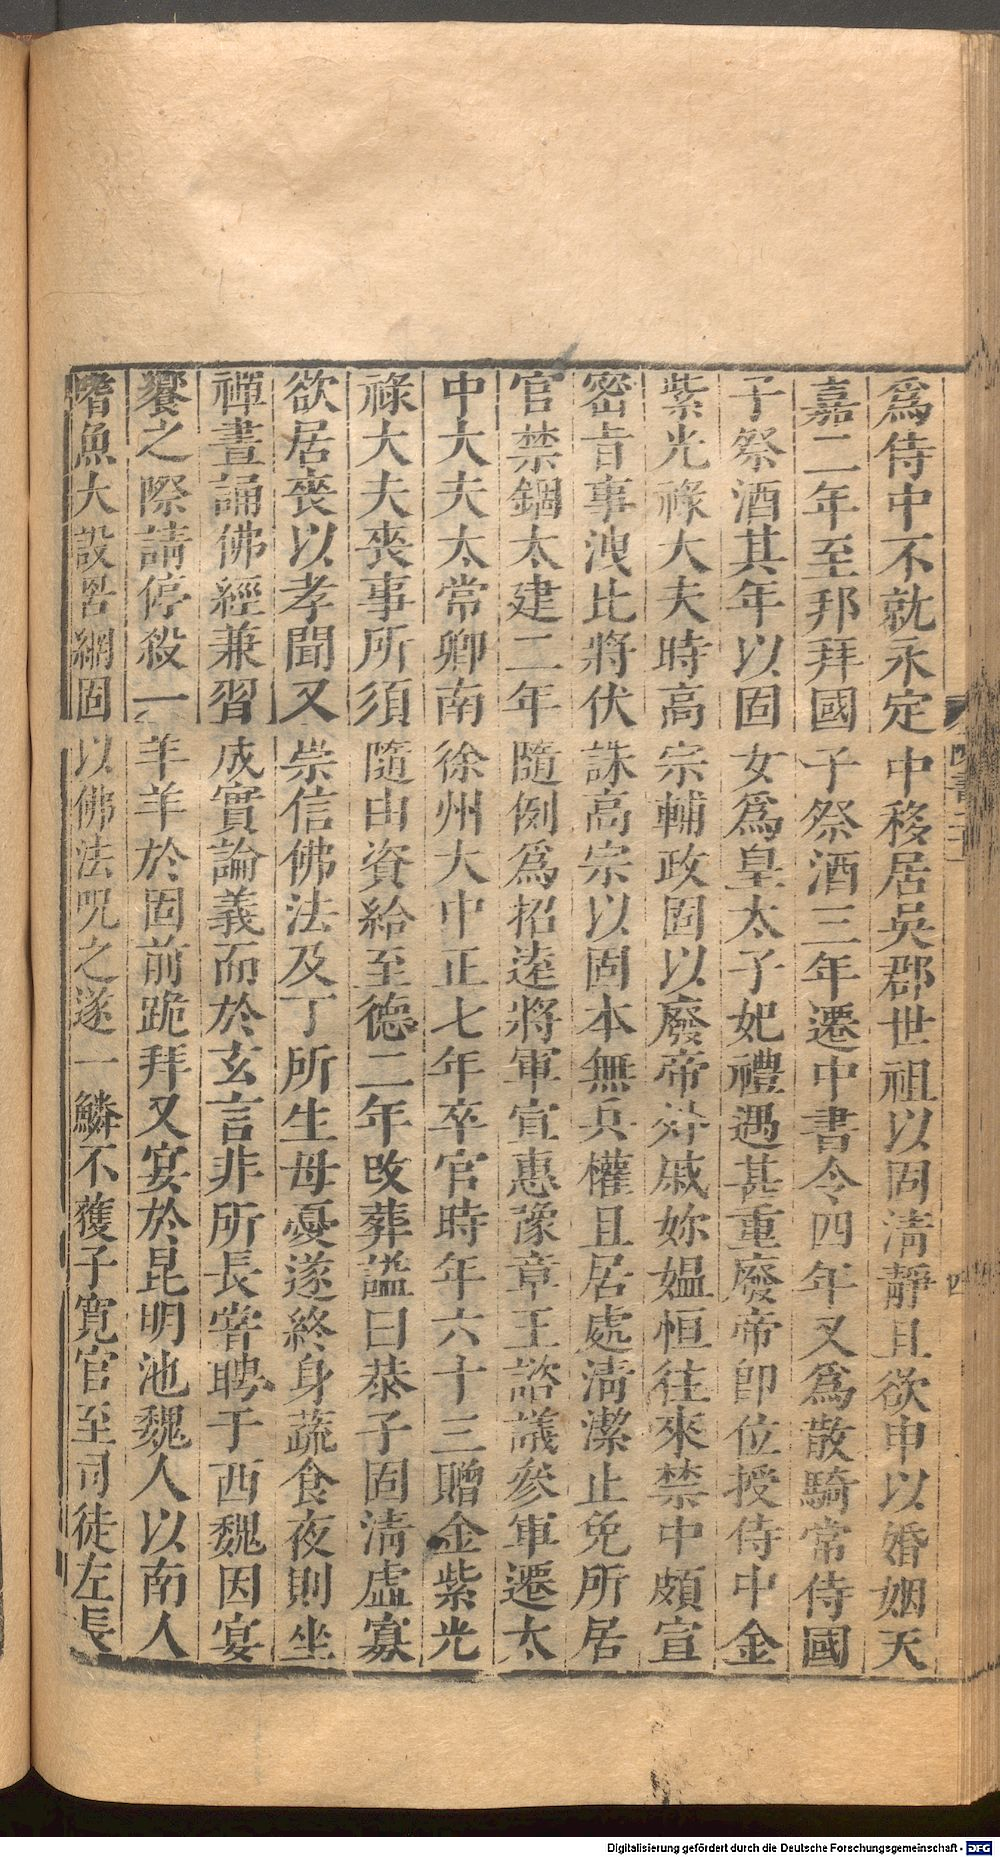 爲侍中不就永定中移居吳郡世祖以固淸靜且欲申以婚姻天
嘉二年至邦拜國子祭酒三年遷中書令四年又爲散騎常侍國
子祭酒其年以固女爲皇太子妃禮遇甚重廢帝卽位授侍中金
紫光祿大夫時高宗輔政固以廢帝外戚妳媼恒往來禁中頗宣
密旨事洩比將伏誅高宗以固本無兵權且居處淸潔止免所居
官禁錮太建二年隨例爲招遠將軍宣惠豫章王諮議參軍遷太
中大夫太常卿南徐州大中正七年卒官時年六十三贈金紫光
祿大夫喪事所須隨由資給至德二年改葬謚曰恭子固淸虛寡
欲居喪以孝聞又崇信佛法及丁所生母憂遂終身蔬食夜則坐
禪晝誦佛經兼習成實論義而於玄言非所長甞聘于西魏因宴
饗之際請停殺一羊羊於固前跪拜又宴於昆明池魏人以南人
嗜魚大設罟網固以佛法呪之遂一鱗不獲子寛官至司徒左長
四
Digitalisierung gefördert durch die Deutsche Forschungsgemeinschaft - DFG